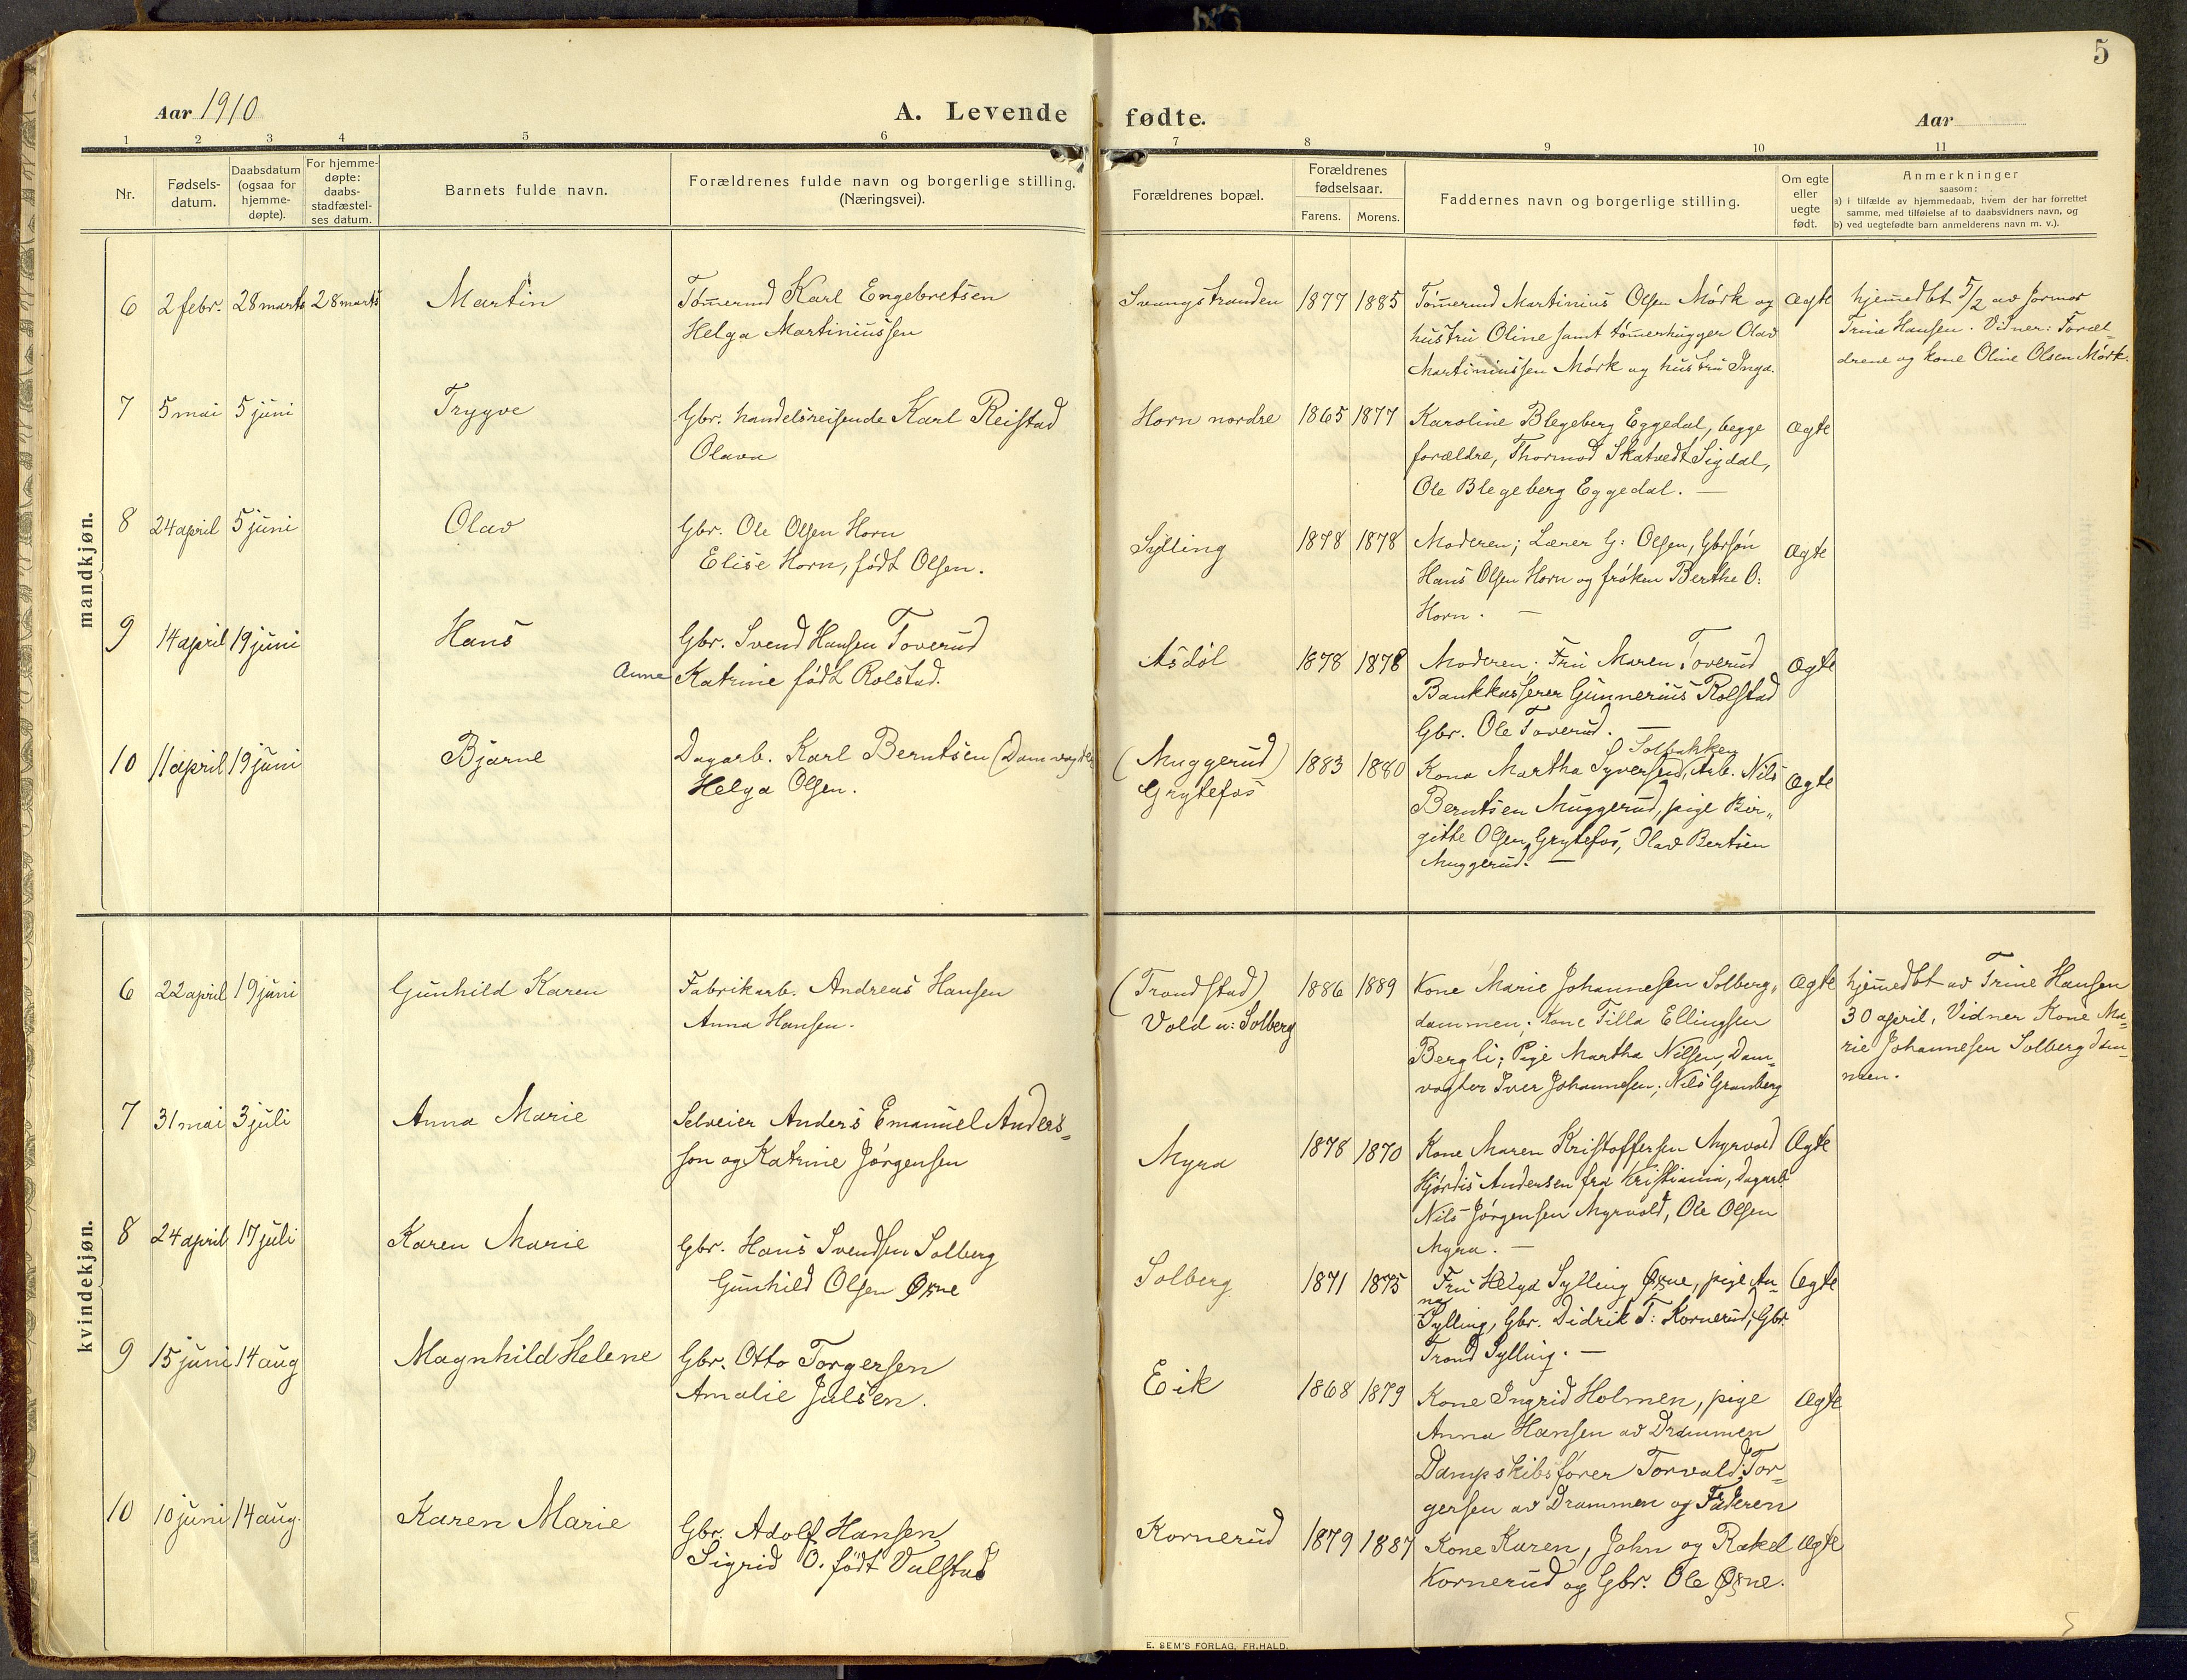 5
Aar 1910
A. Levende fødte.
Aar
1 2 3 4 5 6 7 8 9 10 11
Nr.
Fødsels-
datum.
Daabsdatum
(ogsaa for
hjemme-
døpte).
For hjemme-
døpte:
daabs-
stadfæstel-
ses datum.
Barnets fulde navn.
Forældrenes fulde navn og borgerlige stilling.
(Næringsvei).
Forældrenes bopæl.
Forældrenes
fødselsaar.
Farens. Morens.
Faddernes navn og borgerlige stilling.
Om egte
eller
uegte
født.
Anmerkninger
saasom:
a) i tilfælde av hjemmedaab, hvem der har forrettet
samme, med tilføielse af to daabsvidners navn, og
b) ved uegtefødte barn anmelderens navn m. v.).
mandkjøn.
6 2 febr. 28 marts 28 marts Martin
Tømermd Karl Engebretsen
Helga Martiniussen
Svangstranden 1877 1885
Tømermd Martinius Olsen Mørk og
hustru Oline samt tømerhugger Olav
Martiniussen Mørk og hustru Inga.
Ægte
hjemedbt 5/2 av Jormor
Trine Hansen. Vidner: Foræl-
drene og kone Oline Olsen Mørk.
7 5 mai 5 juni Trygve
Gbr. handelsreisende Karl Reistad
Olava
Horn nordre 1865 1877
Karoline Blegeberg Eggedal, begge
forældre, Thormod Skatvedt Sigdal,
Ole Blegeberg Eggedal. —
Ægte
8 24 april 5 juni Olav
Gbr. Ole Olsen Horn
Elise Horn, født Olsen.
Sylling 1878 1878
Moderen; Lærer G: Olsen, Gbrsøn
Hans Olsen Horn og frøken Berthe O:
Horn. —
Ægte
9 14 april 19 juni Hans
Gbr. Svend Hansen Toverud
Anne Katrine født Rolstad.
Åsdøl 1878 1878
Moderen. Fru Maren Toverud
Bankkasserer Gunnerius Rolstad
Gbr. Ole Toverud. —
Ægte
10 11 april 19 juni Bjarne
Dagarb. Karl Berntsen (Damvogter
Helga Olsen.
(Muggerud)
Grytefos
1883 1880
Solbakken
Kona Martha Syversen, Arb. Nils
Berntsen Muggerud, pige Bir„
gitte Olsen, Grytefos, Olav Bertsen
Muggerud. —
Ægte
kvindekjøn.
6 22 april 19 juni Gunhild Karen
Fabrikarb. Andreas Hansen
Anna Hansen.
(Trondstad)
Vold u: Solberg
1886 1889
Kone Marie Johannesen Solberg„
dammen; Kone Tilla Ellingsen
Bergli; Pige Martha Nilsen, Dam-
vogter Iver Johannesen; Nils Gransberg
Ægte
hjemedbt av Trine Hansen
30 april, Vidner Kone Ma-
rie Johannesen Solbergdam-
men.
7 31 mai 3 juli Anna Marie
Selveier Anders Emanuel Anders-
son og Katrine Jørgensen
Myra 1878 1870
Kone Maren Kristoffersen Myrvold
Hjørdis Andersen fra Kristiania, Dagarb.
Nils Jørgensen Myrvold, Ole Olsen
Myra. —
Ægte
8 24 april 17 juli Karen Marie
Gbr. Hans Svendsen Solberg
Gunhild Olsen Øxne
Solberg 1871 1875
Fru Helga Sylling Øxne, pige An-
na
Sylling, Gbr. Didrik T: Kornerud, Gbr.
Trond Sylling. —
Ægte
9 15 juni 14 aug Magnhild Helene
Gbr. Otto Torgersen
Amalie Julsen.
Eik 1868 1879
Kone Ingrid Holmen, pige
Anna Hansen av Drammen
Dampskibsfører Torvald Tor-
gersen av Drammen og Faderen
Ægte
10 10 juni 14 aug. Karen Marie
Gbr. Adolf Hansen
Sigrid O. født Valstad
Kornerud 1879 1887
Kone Karen, John og Rakel
Kornerud og Gbr. Ole Øxne.
Ægte
E. SEM'S FORLAG, FR.HALD.
5